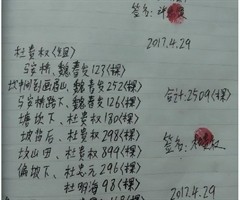 签名:
2017.4.29
杜贵权<组>
马家桥、魏善发123<棵>
魏善发252<棵>
马家桥路下、魏善发126<棵>
塘坎下、杜贵权180<棵>
坡背后、杜贵权298<棵>
坎山田、杜贵权899<棵>
偏坡下、杜忠元296<棵>
杜明海98<棵>
合计:2509<棵>
签名:
2017.4.29